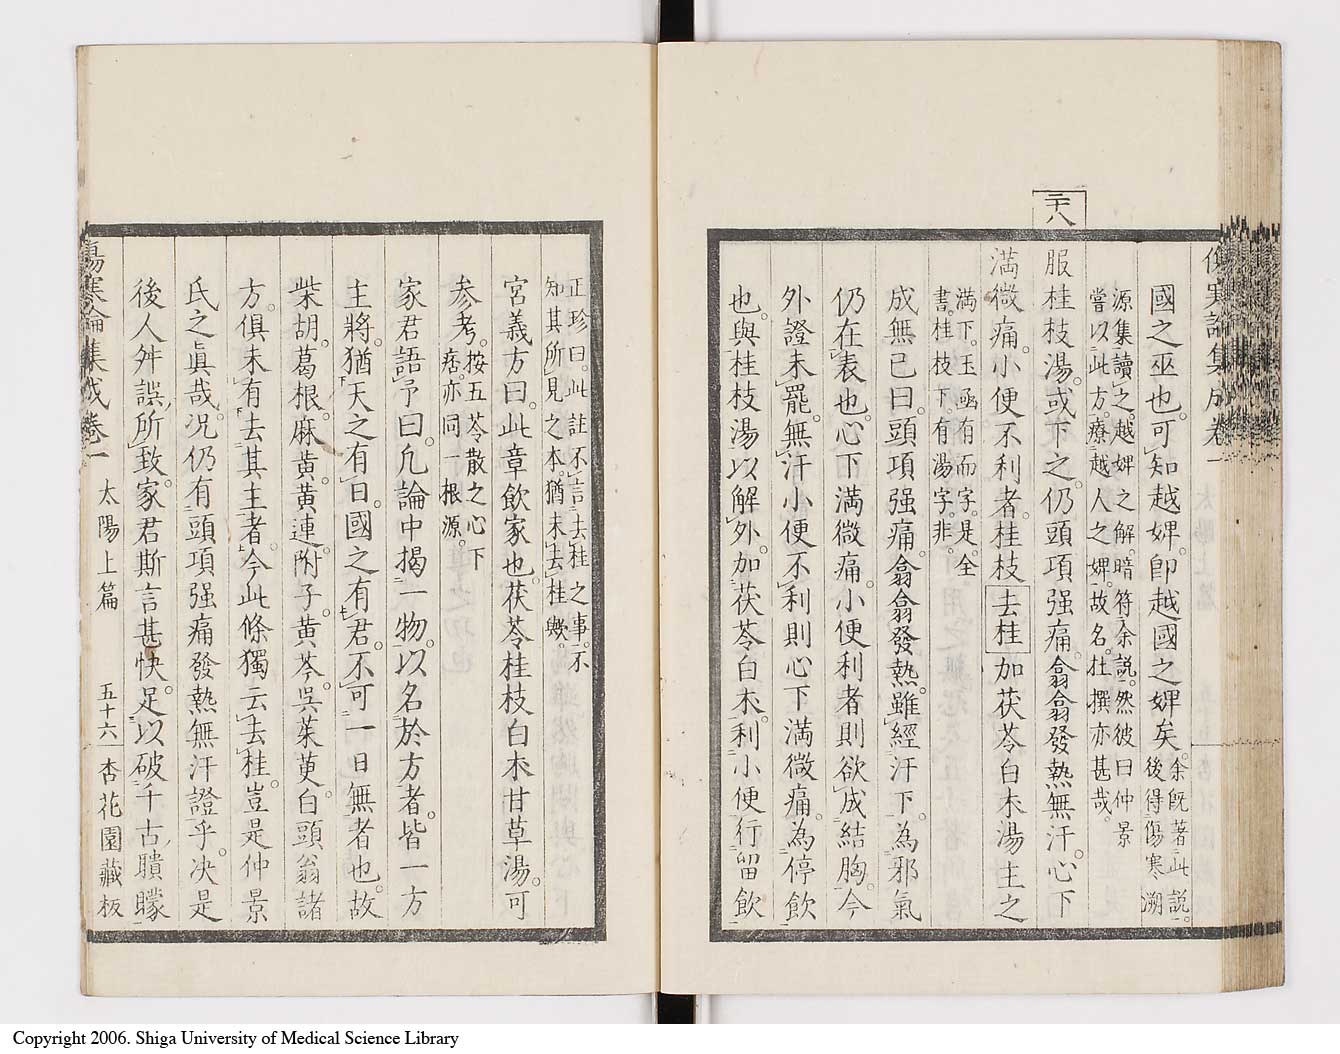 二十八
國之巫也。可知越婢。卽越國之婢矣。余旣著此説。後得傷寒溯
源集讀之。越婢之解。暗符余説。然彼曰仲景
嘗以此方。療越人之婢。故名。杜撰亦甚哉。
服桂枝湯。或下之。仍頭項强痛。翕翕發熱無汗。心下
満微痛。小便不利者。桂枝去桂加茯苓白朮湯主之
満下。玉函有而字。是。全
書。桂枝下。有湯字。非。
成無已曰。頭項强痛。翕翕發熱。雖經汗下。為邪氣
仍在表也。心下満微痛。小便利者則欲成結胸。今
外證未罷。無汗小便不利則心下満微痛。為停飲
也。與桂枝湯以解外。加茯苓白朮。利小便行留飲
正珍曰。此註不言去桂之事。不
知其所見之本。猶未去桂歟。
宮義方曰。此章飲家也。茯苓桂枝白朮甘草湯。可
參考。按五苓散之心下
痞。亦同一根源。
家君語予曰。凡論中揭一物。以名於方者。皆一方
主將。猶天之有日。國之有君。不可一日無者也。故
柴胡。葛根。麻黄。黄連。附子。黄芩。呉茱萸。白頭翁諸
方。俱未有去其主者。今此條獨云去桂。豈是仲景
氏之眞哉。況仍有頭項强痛發熱無汗證乎。决是
後人舛誤所致。家君斯言甚快。足以破千古聵矇
傷寒論集成卷一 太陽上篇 五十六 杏花園藏板
Copyright 2006. Shiga University of Medical Science Library